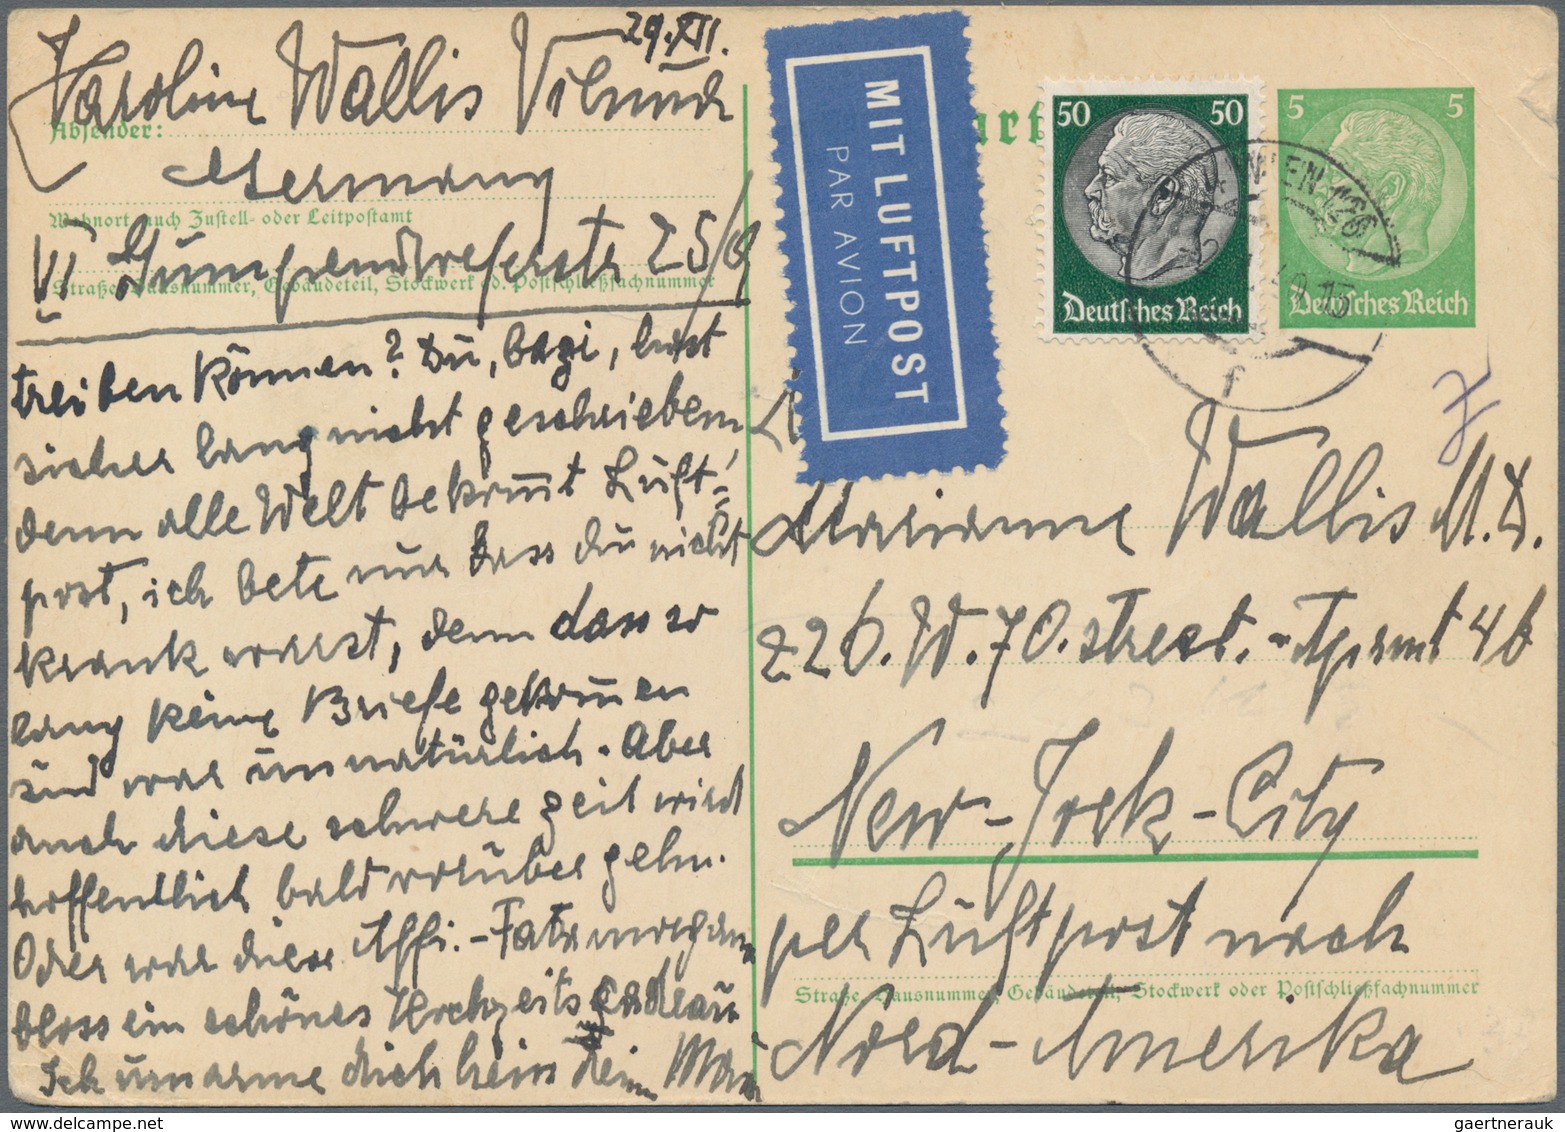 29.XII.
Karoline Wallis
Absender:
Germany
Wohnort, auch Zustell- oder Leitpostamt
VI Gumpendorferstr 25/9
Straße, Hausnummer, Gebäudeteil, Stockwerk od. Postschließfachnummer
treiben können? Du, hast
sicher lang nicht geschrieben,
denn alle Welt bekom̄t Luft=
post, ich bete nur dass du nicht
krank warst, denn dass so
lang keine Briefe gekom̄en
sind war unnatürlich. Aber
auch diese schwere Zeit wird
hoffentlich bald vorüber gehn.
Oder war diese Affi.- Fata morgana
bloss ein schönes Hochzeits
Ich umarme dich dein
MIT LUFTPOST
PAR AVION
art
50 50
Deutsches Reich
5 5
Deutsches Reich
WIEN
f
Marianne Wallis M.D.
226. W. 70. street. - Apramt 4b
New-York-City
per Luftpost nach
Straße, Hausnummer, Gebäudeteil, Stockwerk oder Postschließfachnummer
Nord-Amerika
gaertnerauk